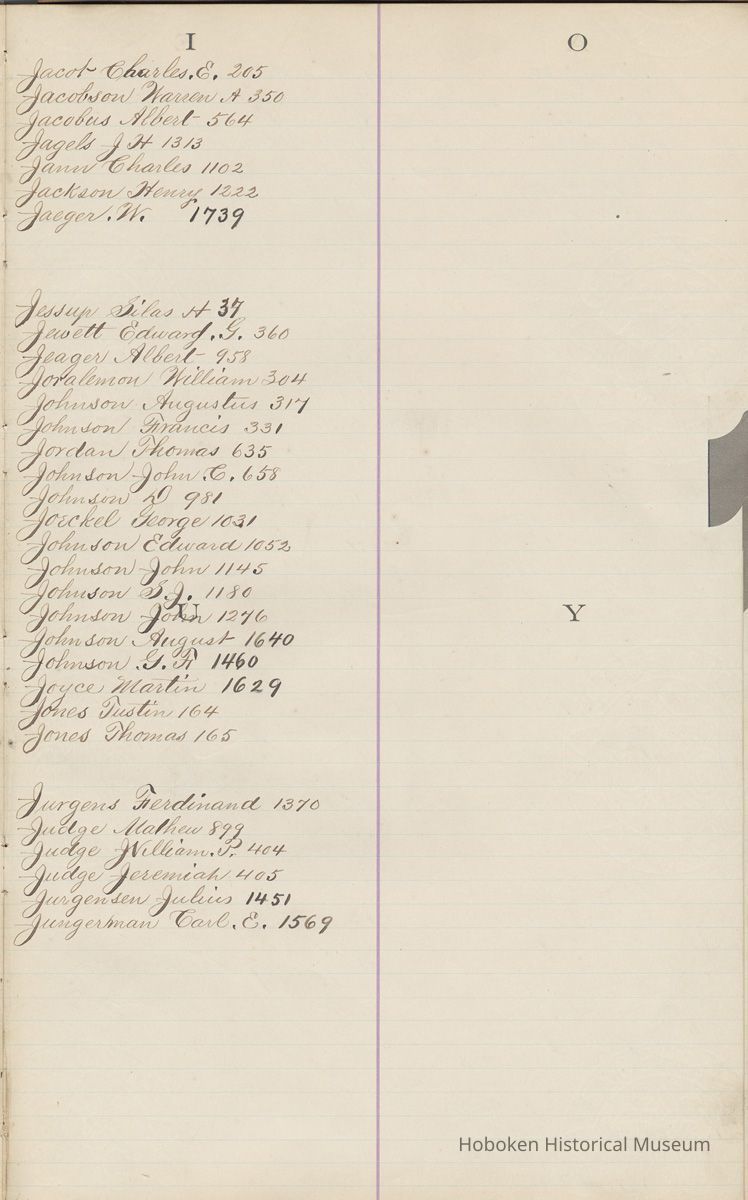 I
O
Jacot Charles. E. 205
Jacobson Warren A 350
Jacobus Albert 564
Jagels J H 1313
Jann Charles 1102
Jackson Henry 1222
Jaeger. W. 1739
Jessup Silas H 37
Jewett Edward. G. 360
Jeager Albert 958
Joralemon William 304
Johnson Augustus 317
Johnson Francis 331
Jordan Thomas 635
Johnson John. C. 658
Johnson D 981
Joeckel George 1031
Johnson Edward 1052
Johnson John 1145
Johnson S. J. 1180
U
Y
Johnson John 1276
Johnson August 1640
Johnson G. F 1460
Joyce Martin 1629
Jones Justin 164
Jones Thomas 165
Jurgens Ferdinand 1370
Judge Mathew 899
Judge William. P. 404
Judge Jeremiah 405
Jurgensen Julius 1451
Jungerman Carl. E. 1569
Hoboken Historical Museum